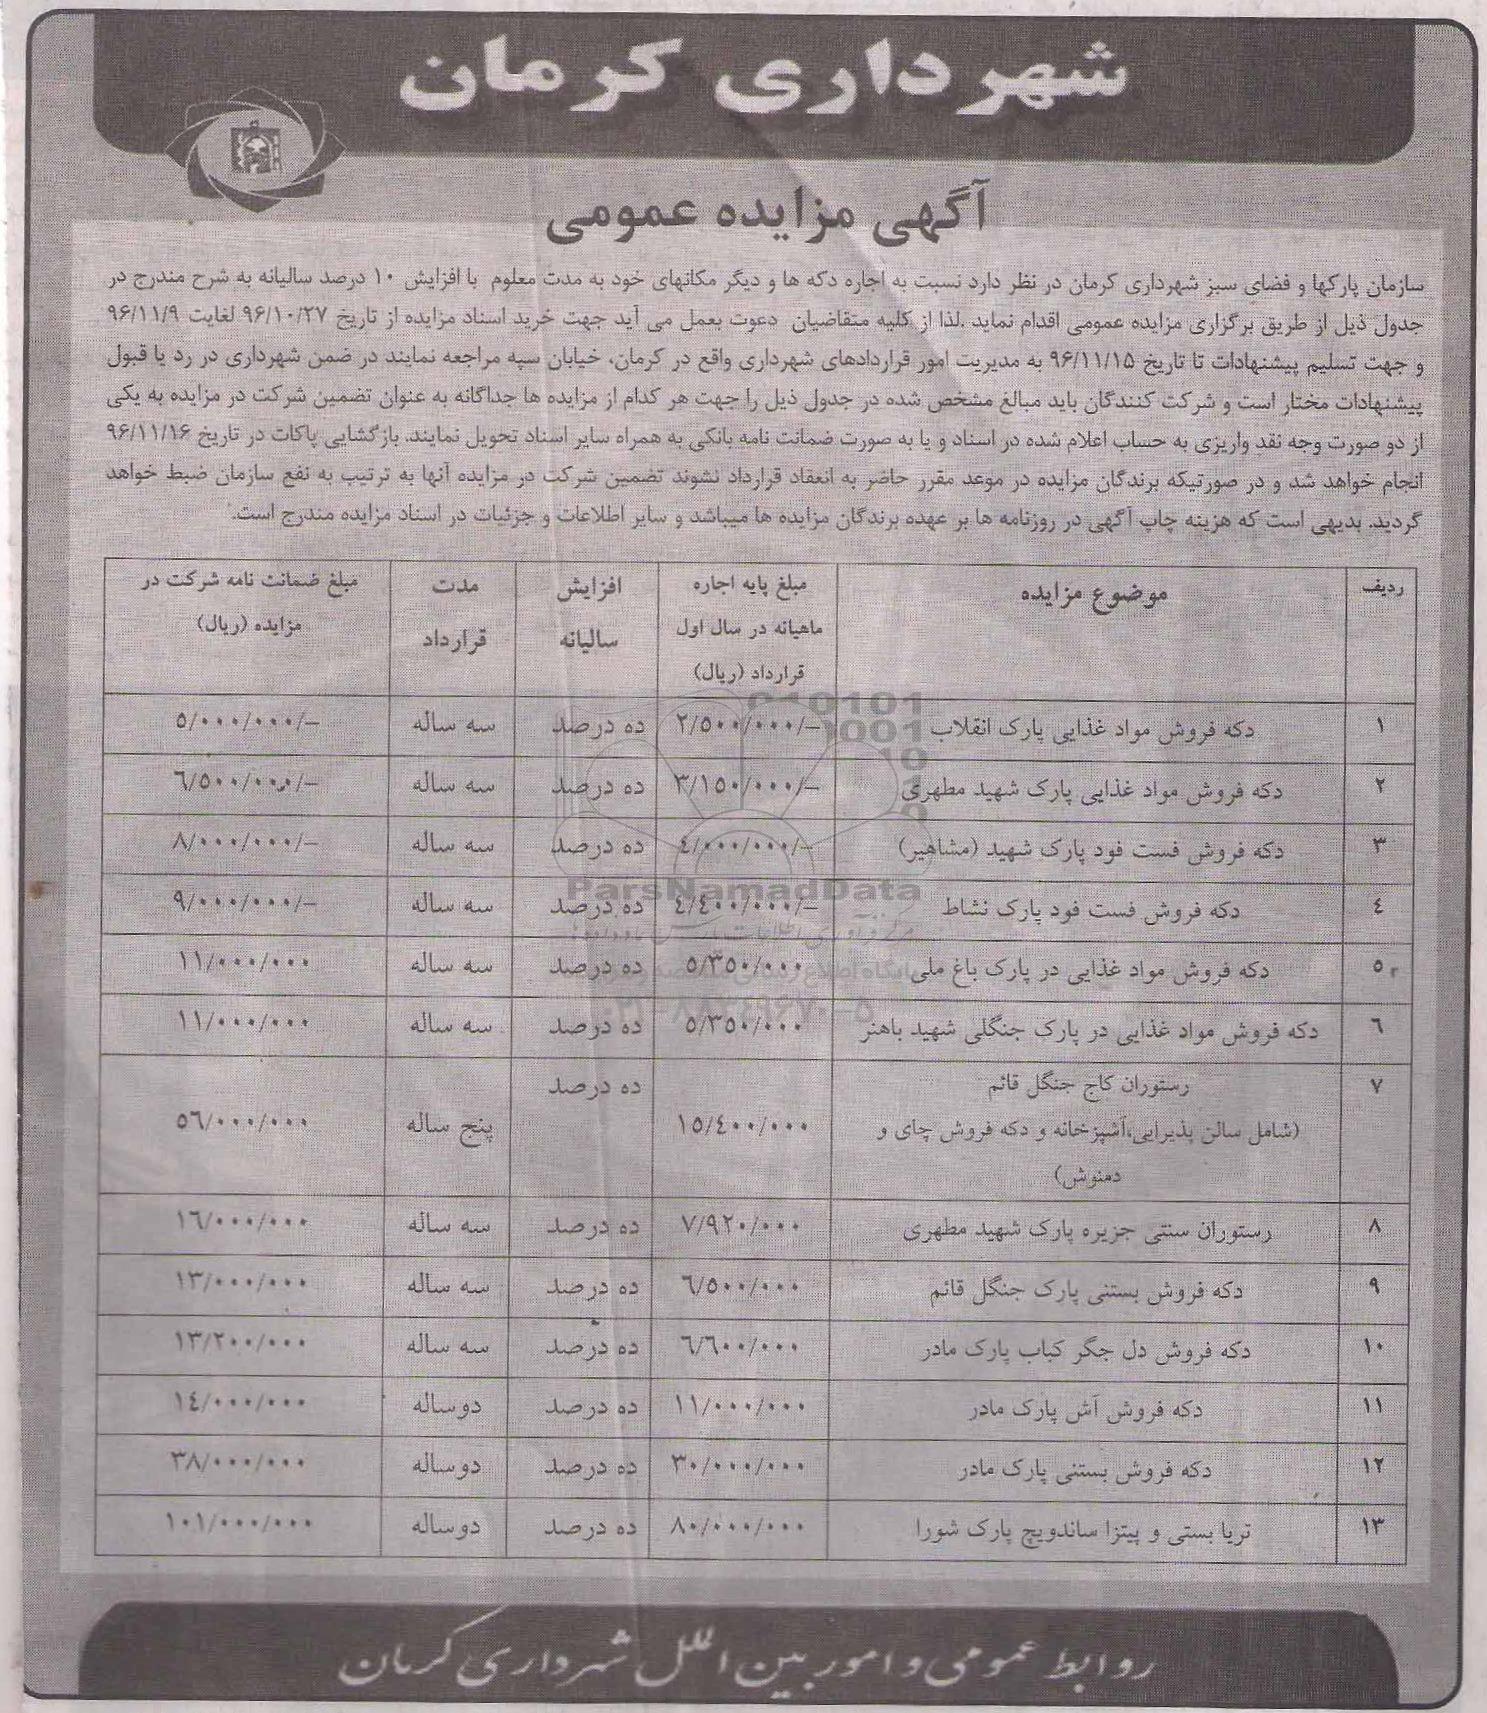 شهرداری کرمان
آگهی مزایده عمومی
سازمان پارکها و فضای سبز شهرداری کرمان در نظر دارد نسبت به اجاره دکه ها و دیگر مکانهای خود به مدت معلوم با افزایش ۱۰ درصد سالیانه به شرح مندرج در
جدول ذیل از طریق برگزاری مزایده عمومی اقدام نماید .لذا از کلیه متقاضیان دعوت بعمل می آید جهت خرید اسناد مزایده از تاریخ ۹۶/۱۰/۲۷ لغایت ۹۶/۱۱/۹
و جهت تسلیم پیشنهادات تا تاریخ ۹۶/۱۱/۱۵ به مدیریت امور قراردادهای شهرداری واقع در کرمان، خیابان سپه مراجعه نمایند در ضمن شهرداری در رد یا قبول
پیشنهادات مختار است و شرکت کنندگان باید مبالغ مشخص شده در جدول ذیل را جهت هر کدام از مزایده ها جداگانه به عنوان تضمین شرکت در مزایده به یکی
از دو صورت وجه نقد واریزی به حساب اعلام شده در اسناد و یا به صورت ضمانت نامه بانکی به همراه سایر اسناد تحویل نمایند. بازگشایی پاکات در تاریخ ۹۶/۱۱/۱۶
انجام خواهد شد و در صورتیکه برندگان مزایده در موعد مقرر حاضر به انعقاد قرارداد نشوند تضمین شرکت در مزایده آنها به ترتیب به نفع سازمان ضبط خواهد
گردید. بدیهی است که هزینه چاپ آگهی در روزنامه ها بر عهده برندگان مزایده ها میباشد و سایر اطلاعات و جزئیات در اسناد مزایده مندرج است.
ردیف موضوع مزایده مبلغ پایه اجاره ماهیانه در سال اول قرارداد (ریال) افزایش سالیانه مدت قرارداد مبلغ ضمانت نامه شرکت در مزایده (ریال)
۱ دکه فروش مواد غذایی پارک انقلاب ۲/۵۰۰/۰۰۰/- ده درصد سه ساله ۵/۰۰۰/۰۰۰/-
۲ دکه فروش مواد غذایی پارک شهید مطهری ۳/۱۵۰/۰۰۰/- ده درصد سه ساله ۶/۵۰۰/۰۰۰/-
۳ دکه فروش فست فود پارک شهید (مشاهیر) ٤/۰۰۰/۰۰۰/- ده درصد سه ساله ۸/۰۰۰/۰۰۰/-
٤ دکه فروش فست فود پارک نشاط ٤/٤۰۰/۰۰۰/- ده درصد سه ساله ۹/۰۰۰/۰۰۰/-
۵ دکه فروش مواد غذایی در پارک باغ ملی ۵/۳۵۰/۰۰۰ ده درصد سه ساله ۱۱/۰۰۰/۰۰۰
۶ دکه فروش مواد غذایی در پارک جنگلی شهید باهنر ۵/۳۵۰/۰۰۰ ده درصد سه ساله ۱۱/۰۰۰/۰۰۰
۷ رستوران کاج جنگل قائم
(شامل سالن پذیرایی،آشپزخانه و دکه فروش چای و
دمنوش) ۱۵/٤۰۰/۰۰۰ ده درصد پنج ساله ۵۶/۰۰۰/۰۰۰
۸ رستوران سنتی جزیره پارک شهید مطهری ۷/۹۲۰/۰۰۰ ده درصد سه ساله ۱۶/۰۰۰/۰۰۰
۹ دکه فروش بستنی پارک جنگل قائم ۶/۵۰۰/۰۰۰ ده درصد سه ساله ۱۳/۰۰۰/۰۰۰
۱۰ دکه فروش دل جگر کباب پارک مادر ۶/۶۰۰/۰۰۰ ده درصد سه ساله ۱۳/۲۰۰/۰۰۰
۱۱ دکه فروش آش پارک مادر ۱۱/۰۰۰/۰۰۰ ده درصد دوساله ۱٤/۰۰۰/۰۰۰
۱۲ دکه فروش بستنی پارک مادر ۳۰/۰۰۰/۰۰۰ ده درصد دوساله ۳۸/۰۰۰/۰۰۰
۱۳ تریا بستی و پیتزا ساندویچ پارک شورا ۸۰/۰۰۰/۰۰۰ ده درصد دوساله ۱۰۱/۰۰۰/۰۰۰
ParsNamadData
۰۲۱-۸۸۳٤۹۶۷۰-۵
روابط عمومی و امور بین الملل شهرداری کرمان